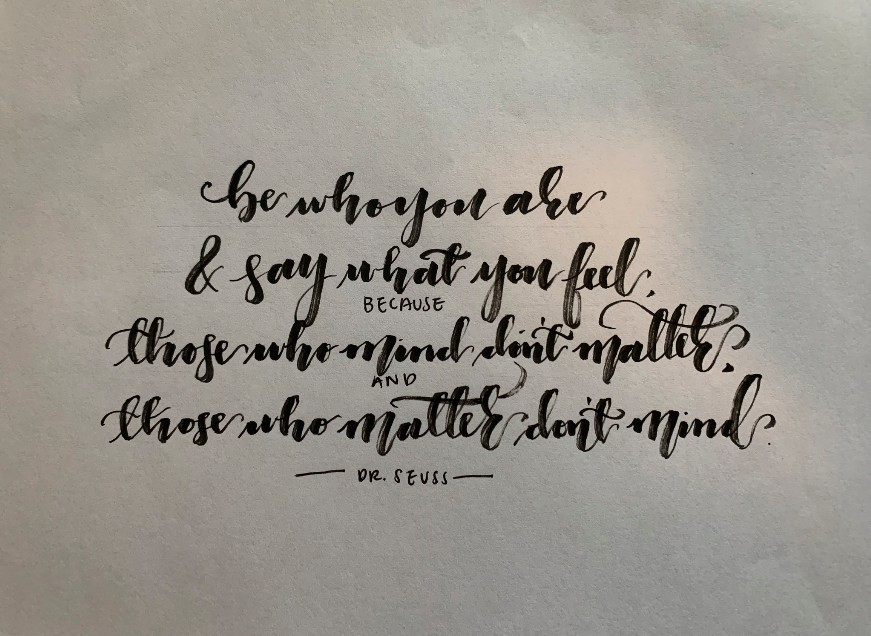 be who you are
& say what you feel,
BECAUSE
those who mind don't matter,
AND
those who matter don't mind.
— DR. SEUSS —